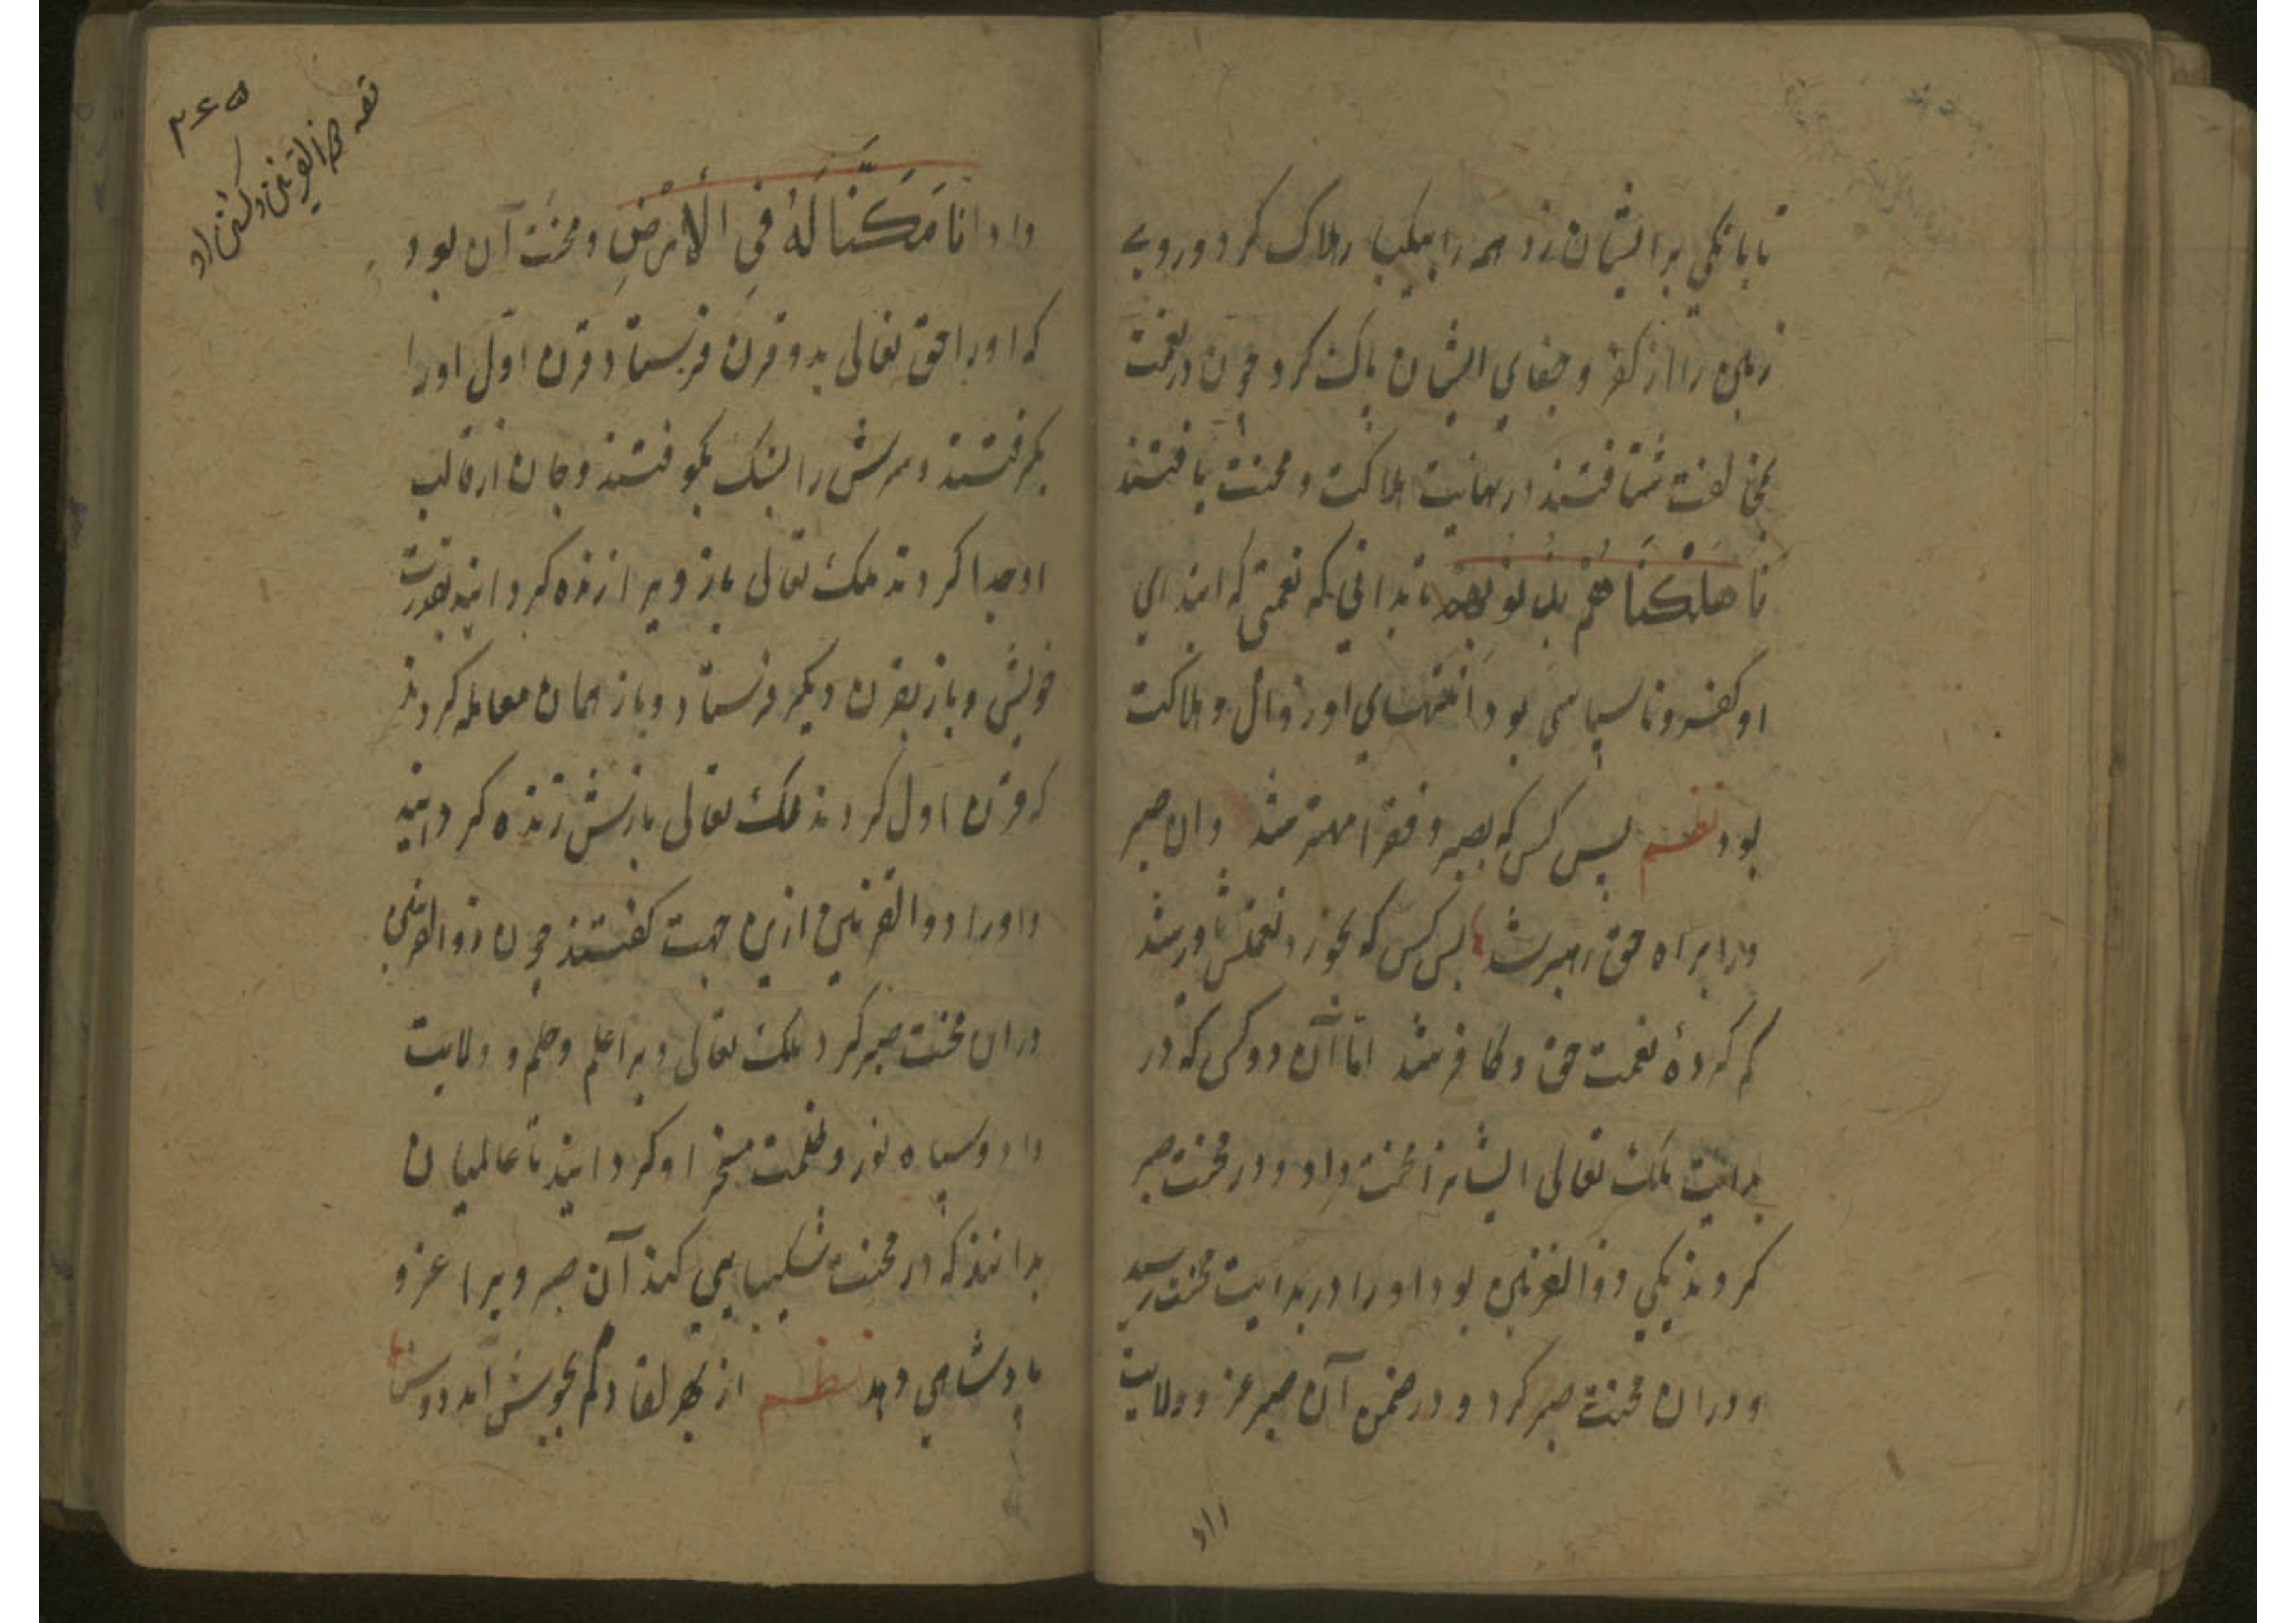 تا بانکی بر ایشان زد همه را بیکبار هلاک کرد و روی
زمین را از کفر و جفای ایشان پاک کرد چون در نعمت
بمخالفت شتافتند در نهایت هلاکت و محنت یافتند
فاهلکناهم بذنوبهم تا بدانی که نعمتی که ابتدای
او کفر و ناسپاسی بود انتهای او زوال و هلاکت
بود نظم پس کس که بصبر و فقرا مهتر شد وان صبر
ورا براه حق رهبر شد پس کس که بخورد نعمتش
کم کرده نعمت حق و کافر شد اما آن دو کس که در
بدایت ملک تعالی ایشانرا محنت داد و در محنت صبر
کردند یکی ذوالقرنین بود او را در بدایت محنت رسید
و در آن محنت صبر کرد و در ضمن آن صبر عز و ولایت
داد
۳۶۵
قصه ذوالقرنین
داد انا مکنا له فی الارض و محنت آن بود
که او را حق تعالی بدو قرن فرستاد قرن اول او را
بکرفتند و سرش را بسنک بکوفتند و جان از قالب
او جدا کردند ملک تعالی باز ویرا زنده کردانید بقدرت
خویش و باز بقرن دیکر فرستاد و باز همان معامله کردند
که قرن اول کردند ملک تعالی بازش زنده کردانید
و او را ذوالقرنین ازین جهت کفتند چون ذوالقرنین
در ان محنت صبر کرد ملک تعالی ویرا علم و حلم و ولایت
داد و سپاه نور و ظلمت مسخر او کردانید تا عالمیان
بدانند که در محنت شکیبایی کند آن صبر ویرا عز و
پادشاهی دهد نظم از بهر لقا دلم بجوش آمد دوش